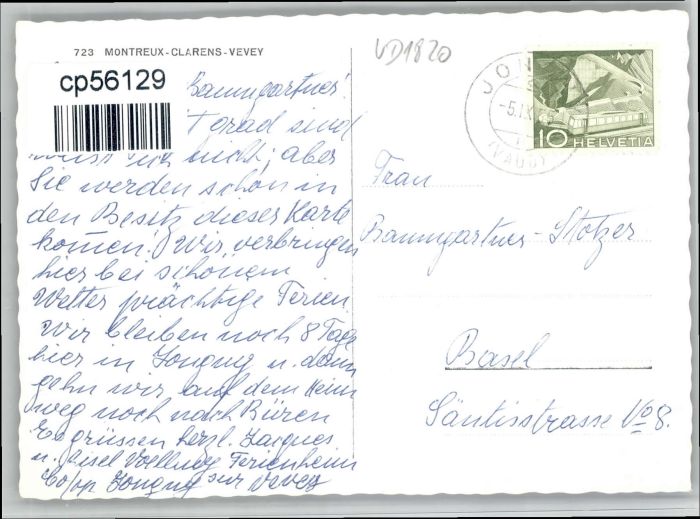 723 MONTREUX-CLARENS-VEVEY
VD1820
cp56129
Baumgartner!
Grad sind
nicht; aber
Sie werden schon in
den Besitz dieser Karte
kommen! Wir verbringen
hier bei schönem
Wetter prächtige Ferien
Wir bleiben noch 8 Tage
hier in Jongny u. dann
gehn wir auf dem Heim
weg noch nach Büren
Es grüssen herzl. Jacques
u. Lisel Vollmy Ferienheim
Co/op Jongny sur Vevey
JON
-5.IX
(VAUD)
10 HELVETIA
Frau
Baumgartner-Stotzer
Basel
Säntisstrasse No 8.